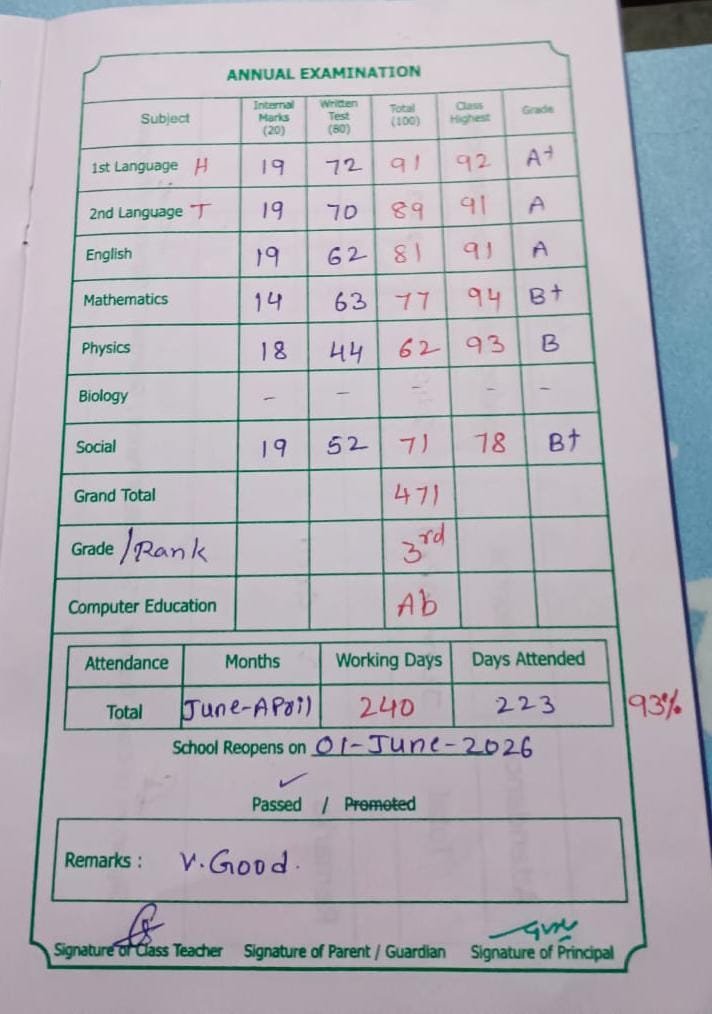 ANNUAL EXAMINATION
Subject Internal Marks (20) Written Test (80) Total (100) Class Highest Grade
1st Language H 19 72 91 92 A+
2nd Language T 19 70 89 91 A
English 19 62 81 91 A
Mathematics 14 63 77 94 B+
Physics 18 44 62 93 B
Biology - - - - -
Social 19 52 71 78 B+
Grand Total 471
Grade / Rank 3rd
Computer Education Ab
Attendance Months Working Days Days Attended
Total June-April 240 223 93%
School Reopens on 01-June-2026
Passed / Promoted
Remarks : V.Good.
Signature of Class Teacher Signature of Parent / Guardian Signature of Principal